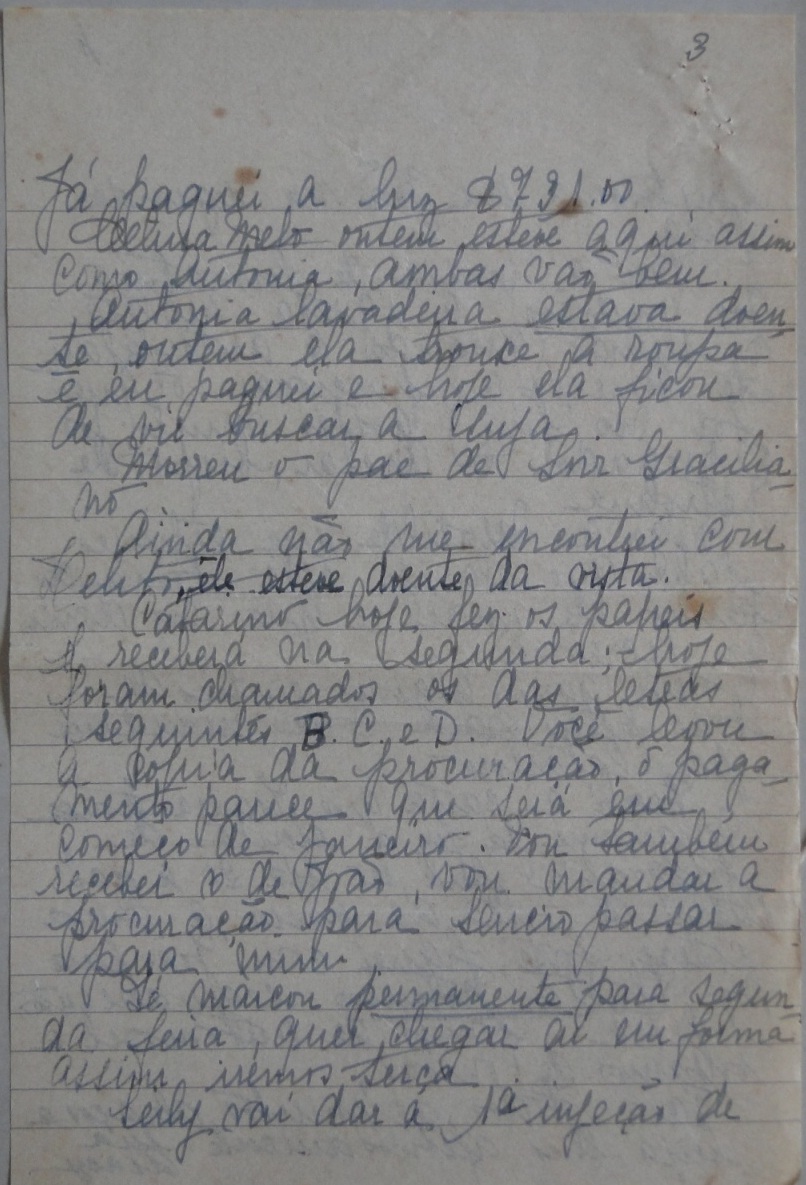 3
Já paguei a luz $791.00
Melo ontem esteve aqui assim
como Antonia, ambas vão bem.
Antonia lavadeira estava doen-
te, ontem ela trouxe a roupa
e eu paguei e hoje ela ficou
de vir buscar a suja.
Morreu o pae de Snr Gracilia-
no
Ainda não me encontrei com
ele esteve doente da vista.
Catarino hoje fez os papeis
e receberá na segunda; hoje
foram chamados os das letras
seguintes B. C. e D. Você levou
a copia da procuração, o paga-
mento parece que será em
começo de Janeiro. Vou também
receber o de João, vou mandar a
procuração para passar
para mim.
Sé marcou permanente para segun-
da feira, quer chegar ai em forma
assim iremos terça
vai dar a 1ª injeção de